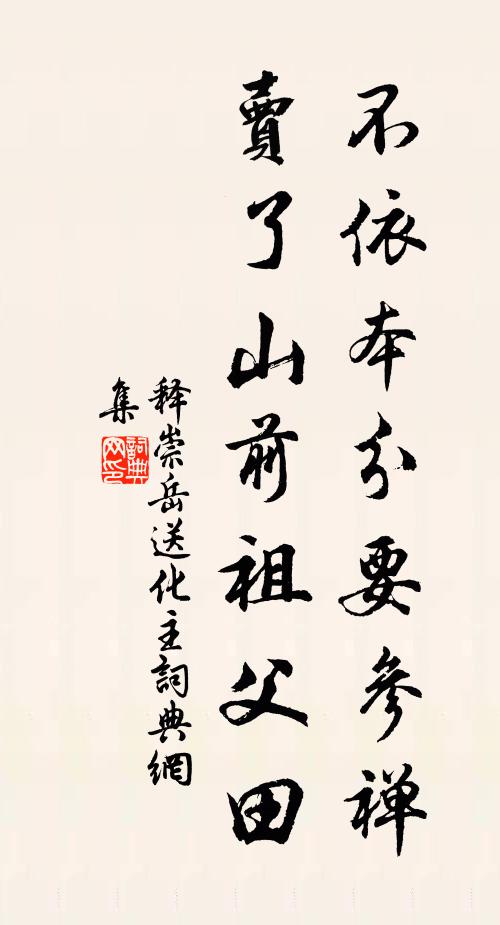 不依本分要參禅
賣了山前祖父田
释崇岳送化主詞典網
集
詞典网印